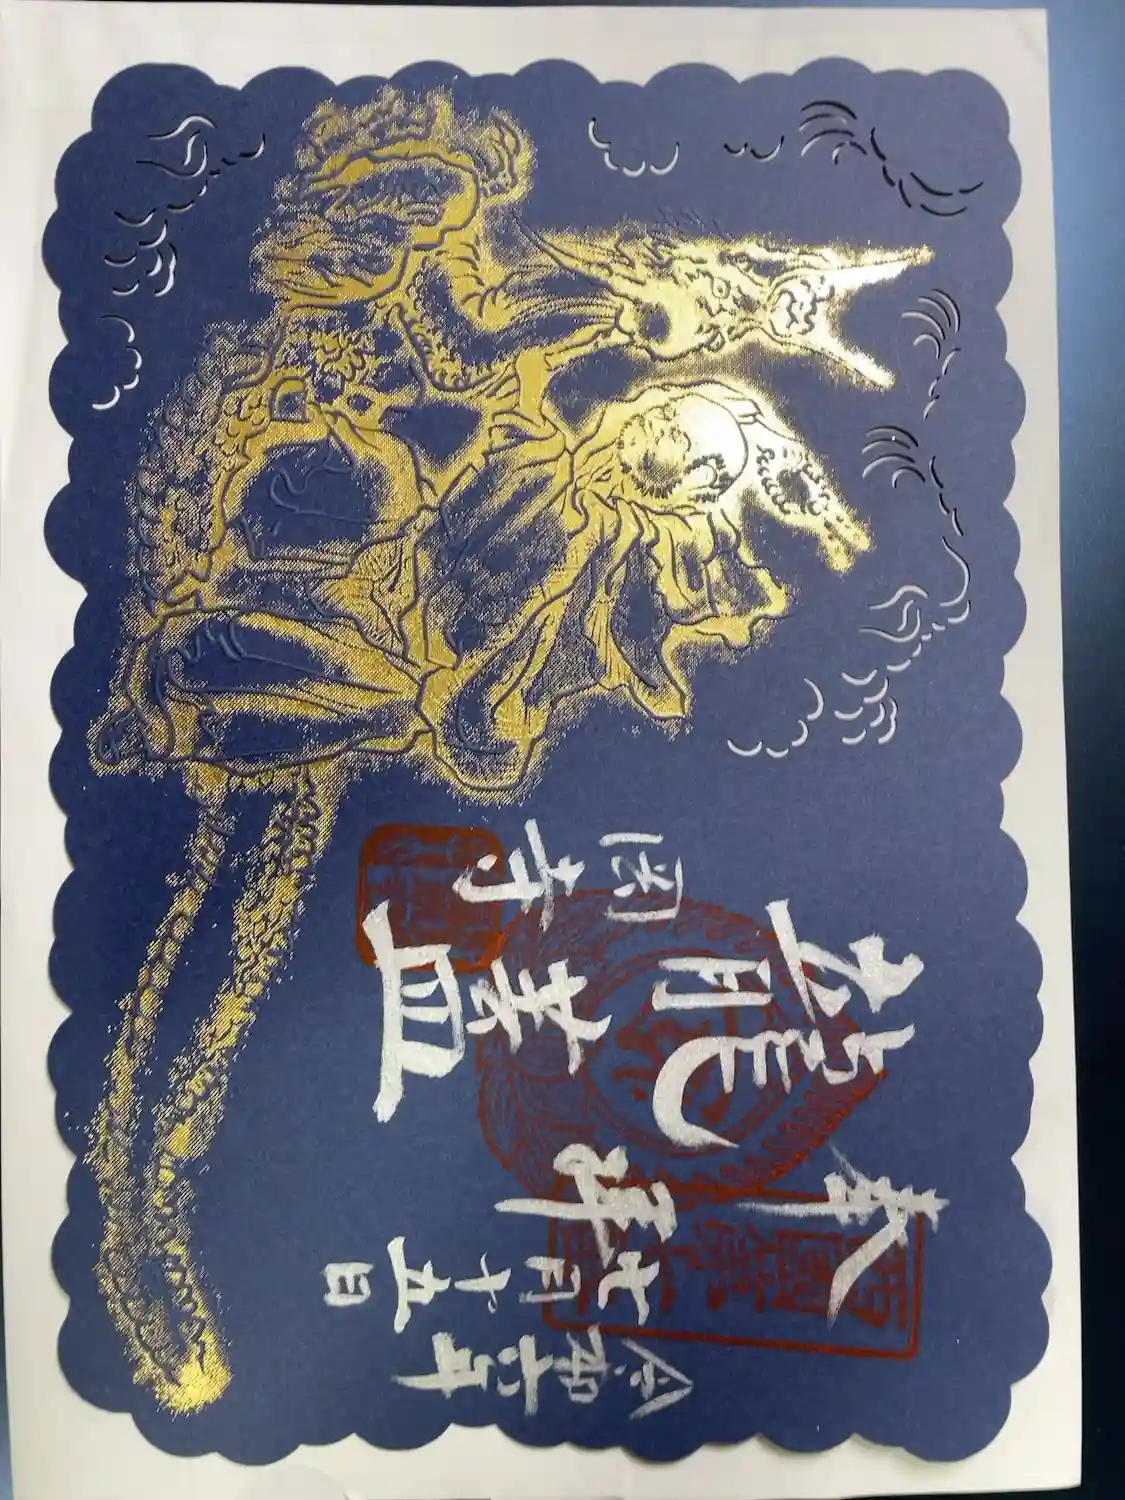 令和六年
七月十五日
奉拝
龍蓋
岡寺